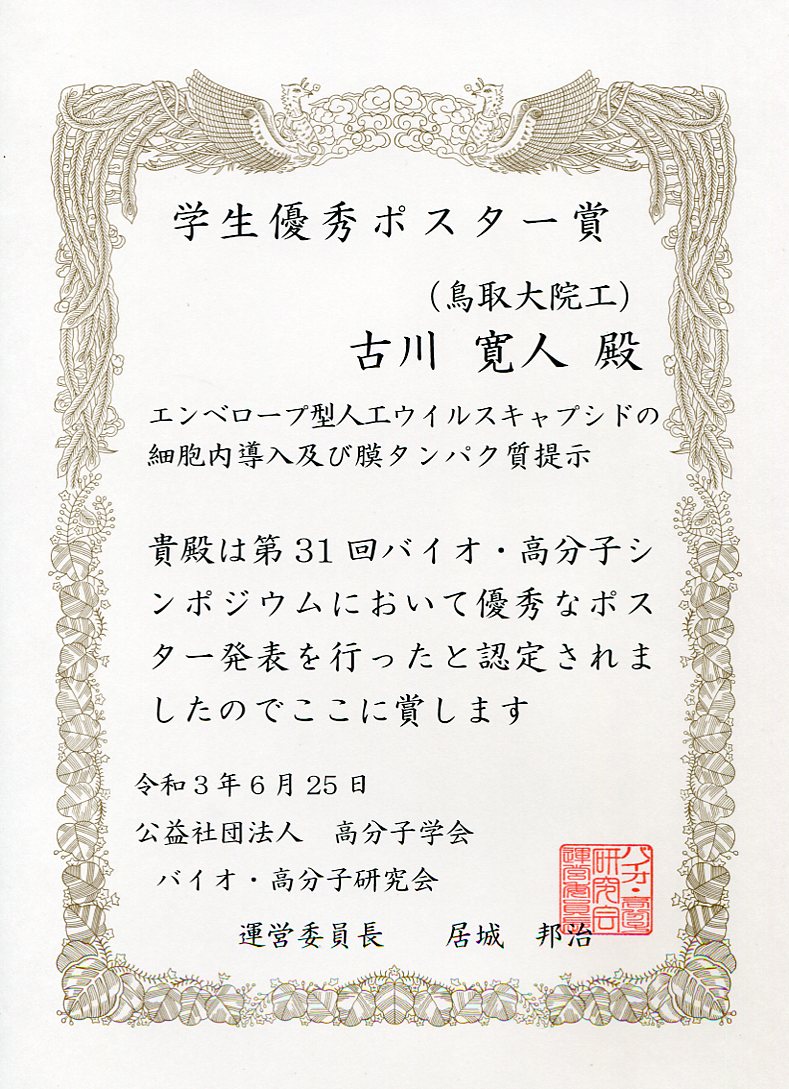 学生優秀ポスター賞
（鳥取大院工）
古川 寛人 殿
エンベロープ型人工ウイルスキャプシドの
細胞内導入及び膜タンパク質提示
貴殿は第 31 回バイオ・高分子シ
ンポジウムにおいて優秀なポス
ター発表を行ったと認定されま
したのでここに賞します
令和３年 6 月 25 日
公益社団法人　高分子学会
バイオ・高分子研究会
運営委員長　居城　邦治